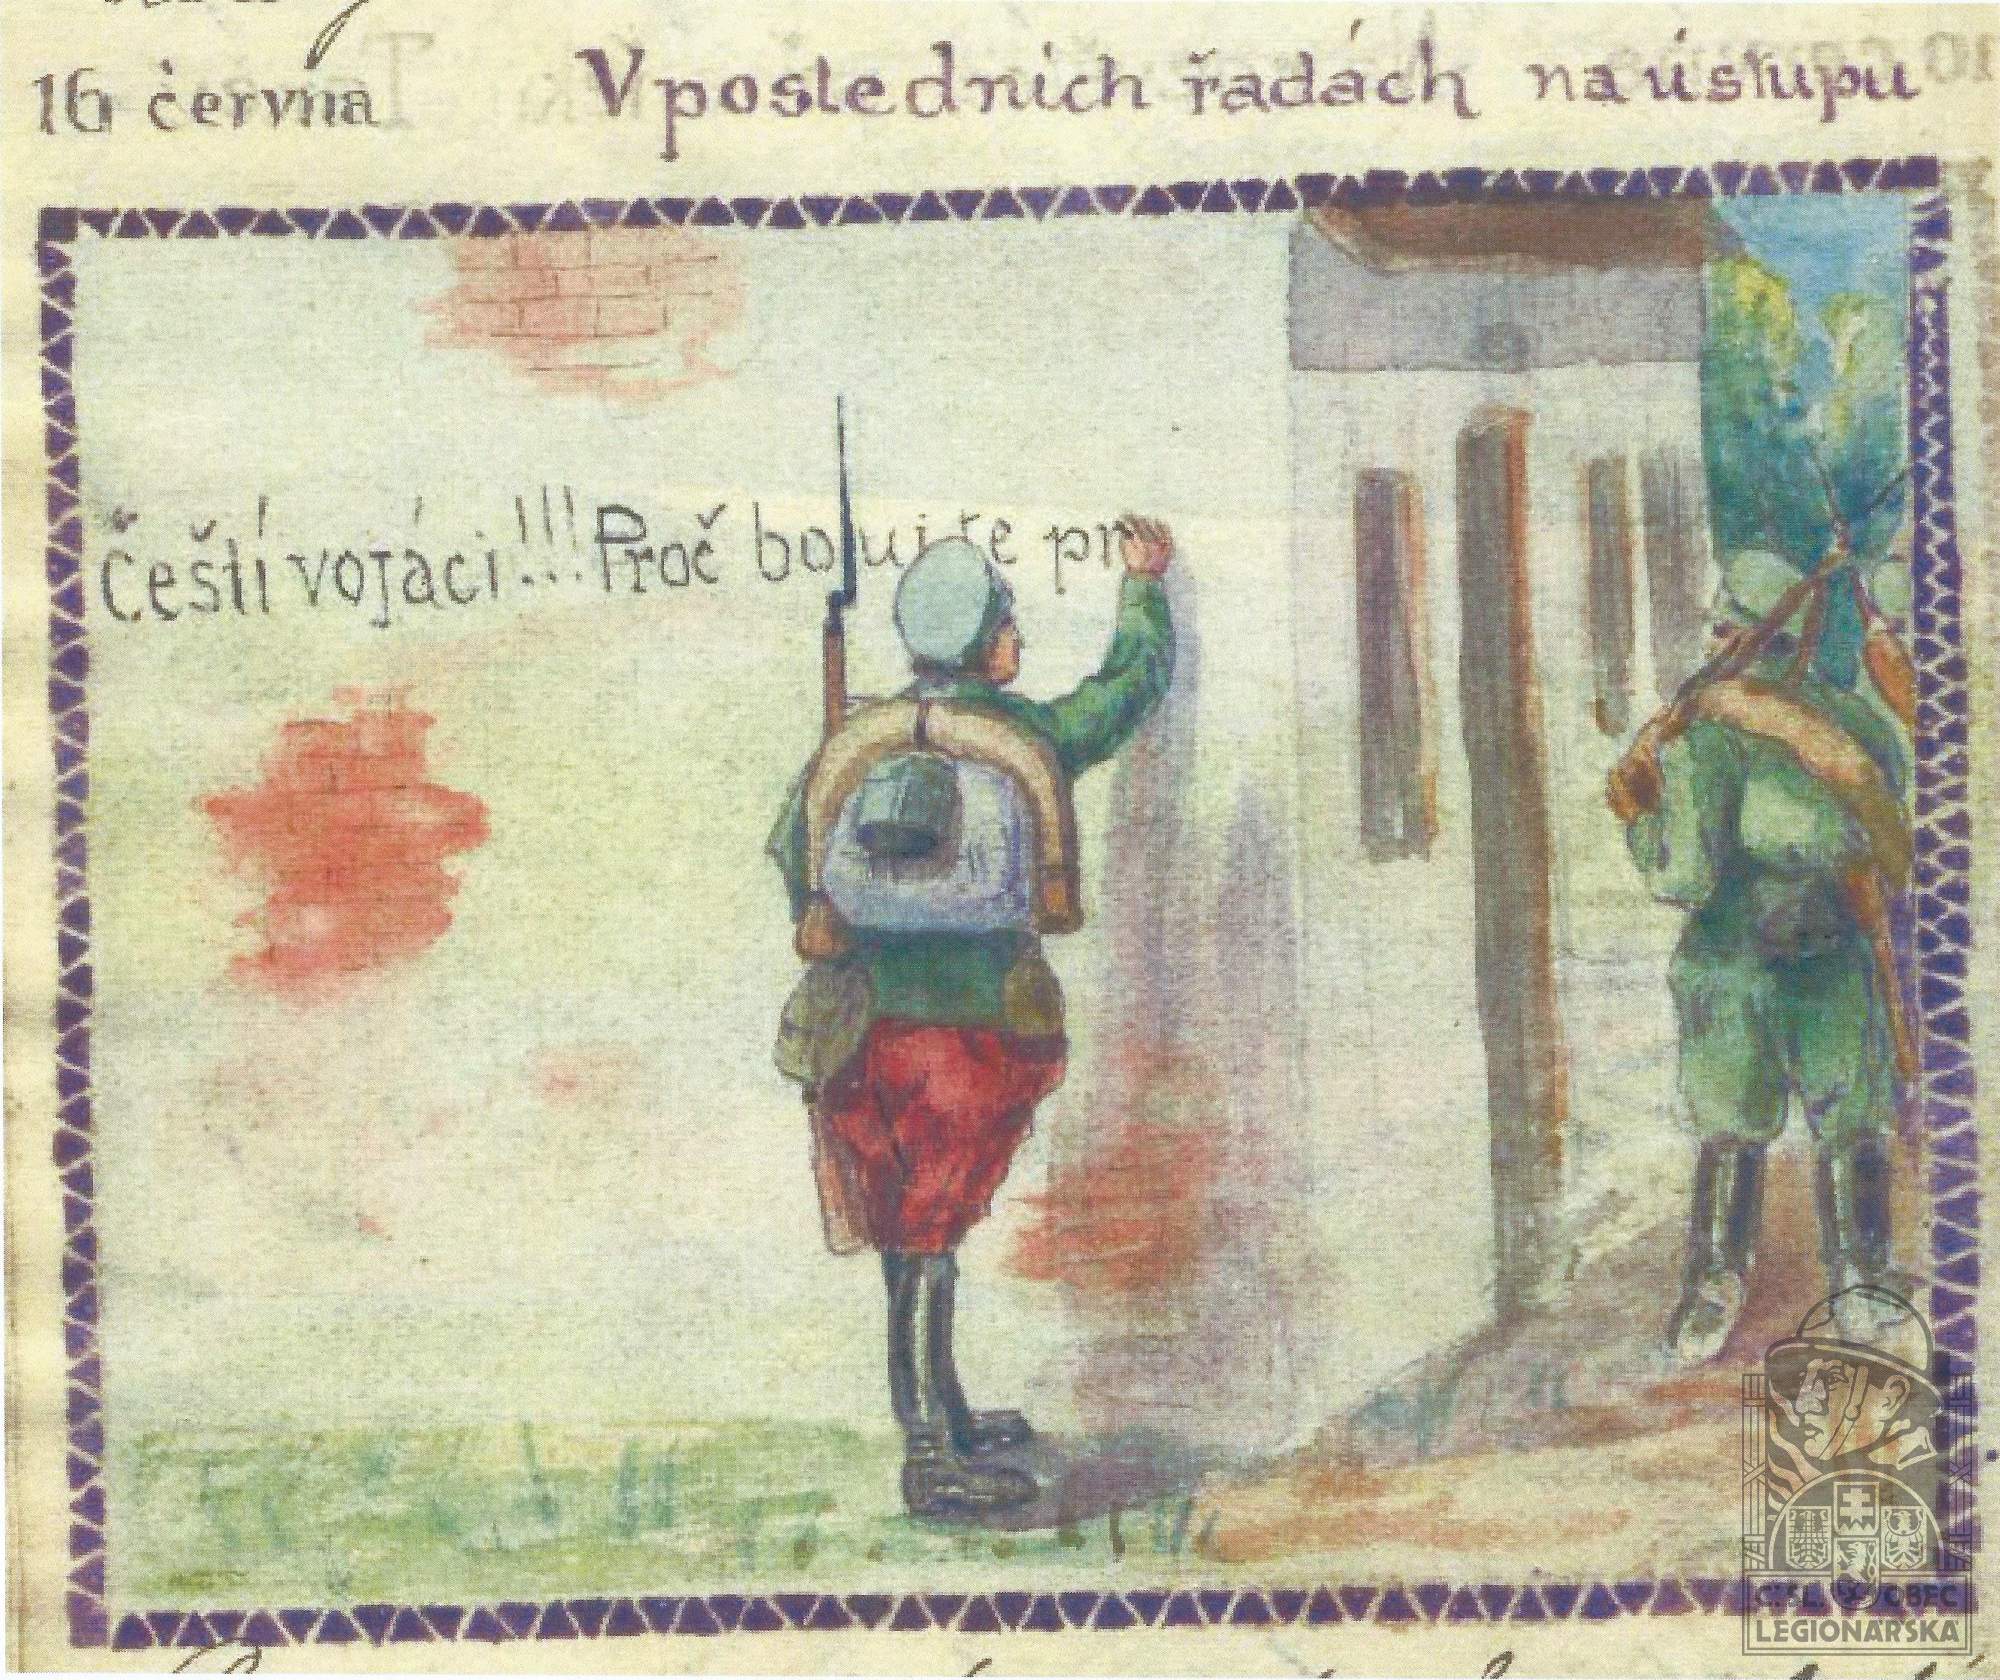 16 června V posledních řadách na ústupu
Čeští vojáci!!! Proč bojujete pr
Č.SL. OBEC
LEGIONÁŘSKÁ